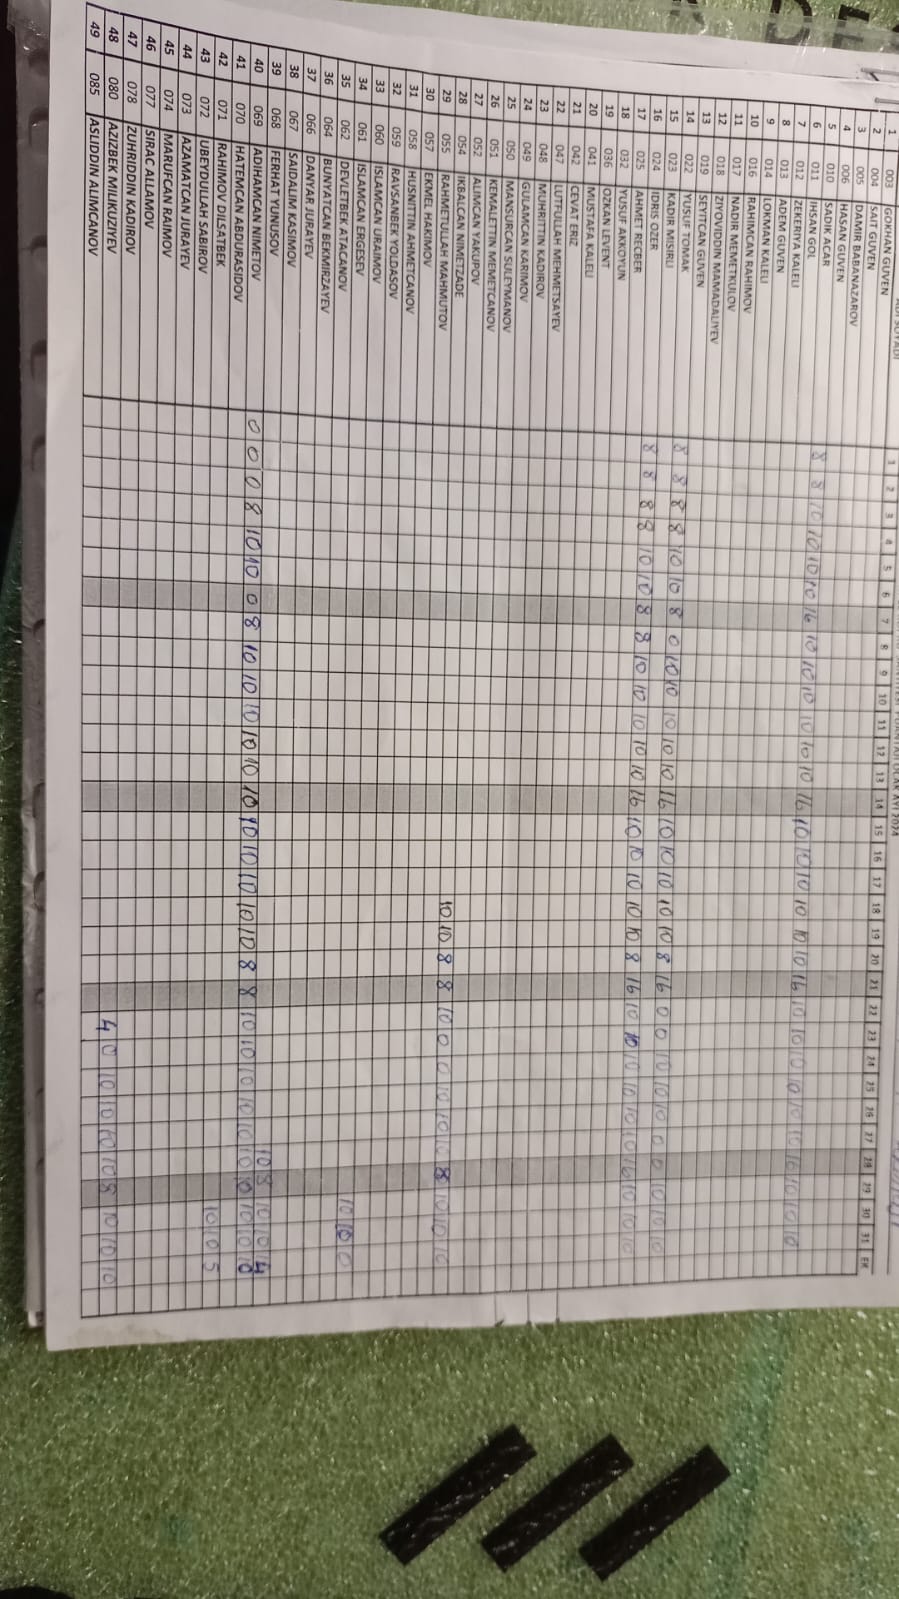 ADI SOYADI PUANTAJI OCAK AYI 2024
1 2 3 4 5 6 7 8 9 10 11 12 13 14 15 16 17 18 19 20 21 22 23 24 25 26 27 28 29 30 31 EK
1 003 GOKHAN GUVEN
2 004 SAIT GUVEN
3 005 DAMIR BABANAZAROV
4 006 HASAN GUVEN
5 010 SADIK ACAR
6 011 IHSAN GOL 8 8 10 10 10 10 16 10 10 10 10 10 10 16 10 10 10 10 10 10 16 10 10 10 10 10 10 16 10 10 10
7 012 ZEKERIYA KALELI
8 013 ADEM GUVEN
9 014 LOKMAN KALELI
10 016 RAHIMCAN RAHIMOV
11 017 NADIR MEMETKULOV
12 018 ZIYOVIDDIN MAMADALIYEV
13 019 SEYITCAN GUVEN
14 022 YUSUF TOMAK 8 8 8 8 10 10 8 0 10 10 10 10 10 16 10 10 10 10 10 8 16 0 0 10 10 10 0 0 10 10 10
15 023 KADIR MISIRLI
16 024 IDRIS OZER 8 8 8 8 10 10 8 8 10 10 10 10 10 16 10 10 10 10 10 8 16 10 10 10 10 10 10 16 10 10 10
17 025 AHMET RECBER
18 032 YUSUF AKKOYUN
19 036 OZKAN LEVENT
20 041 MUSTAFA KALELI
21 042 CEVAT ERIZ
22 047 LUTFULLAH MEHMETSAYEV
23 048 MUHRITTIN KADIROV
24 049 GULAMCAN KARIMOV
25 050 MANSURCAN SULEYMANOV
26 051 KEMALETTIN MEMETCANOV
27 052 ALIMCAN YAKUPOV
28 054 IKBALCAN NIMETZADE
29 055 RAHMETULLAH MAHMUTOV 10 10 8 8 10 0 0 10 10 10 8 10 10 10
30 057 EKMEL HAKIMOV
31 058 HUSNITTIN AHMETCANOV
32 059 RAVSANBEK YOLDASOV
33 060 ISLAMCAN URAIMOV
34 061 ISLAMCAN ERGESEV
35 062 DEVLETBEK ATACANOV 10 10 0
36 064 BUNYATCAN BEKMIRZAYEV
37 066 DANYAR JURAYEV
38 067 SAIDALIM KASIMOV
39 068 FERHAT YUNUSOV 10 8 10 10 14
40 069 ADIHAMCAN NIMETOV 0 0 0 8 10 10 0 8 10 10 10 10 10 10 10 10 10 10 10 8 8 10 10 10 10 10 10 10 10 10 10
41 070 HATEMCAN ABDURASIDOV
42 071 RAHIMOV DILSATBEK 10 10 5
43 072 UBEYDULLAH SABIROV
44 073 AZAMATCAN JURAYEV
45 074 MARUFCAN RAIMOV
46 077 SIRAC ALLAMOV
47 078 ZUHRIDDIN KADIROV
48 080 AZIZBEK MILIKUZIYEV 4 0 10 10 10 10 8 10 10 10
49 085 ASLIDDIN ALIMCANOV